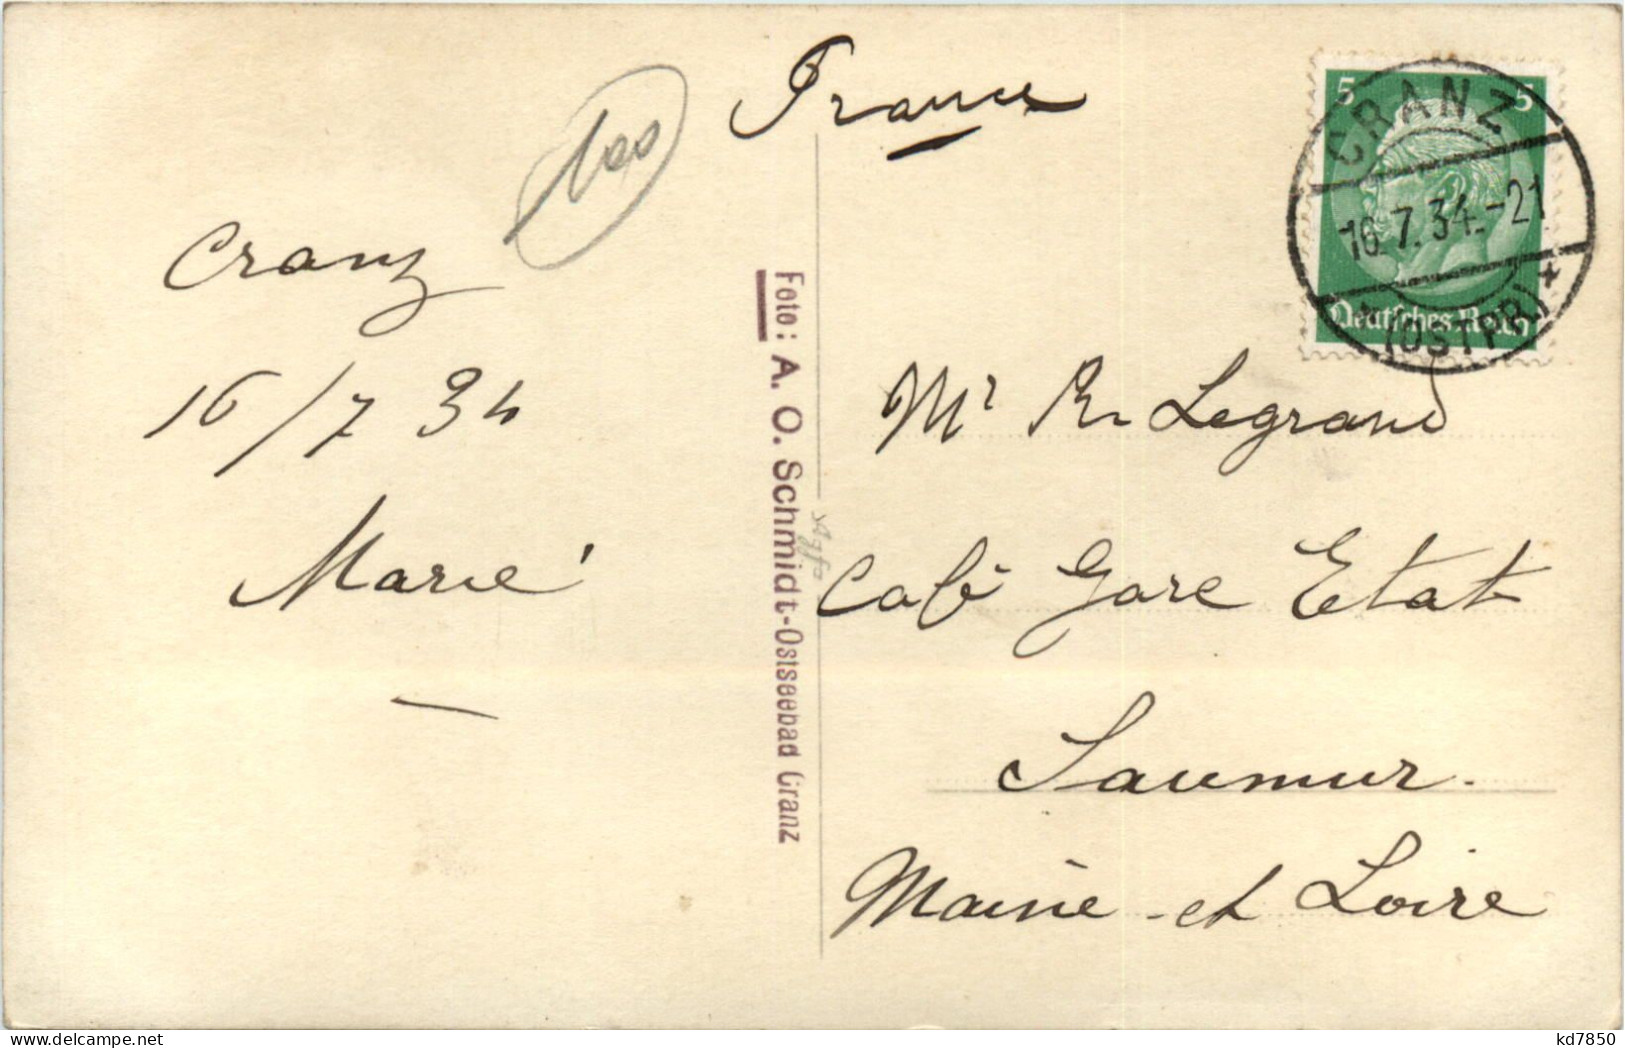 France
100
Cranz
16/7 34
Marie
Foto: A. O. Schmidt-Ostseebad Cranz
Agfa
5 5
Deutsches Reich
CRANZ
16.7.34.-21
* (OSTPR) *
Mr R Legrand
Café Gare Etat
Saumur.
Maine-et Loire
kd7850